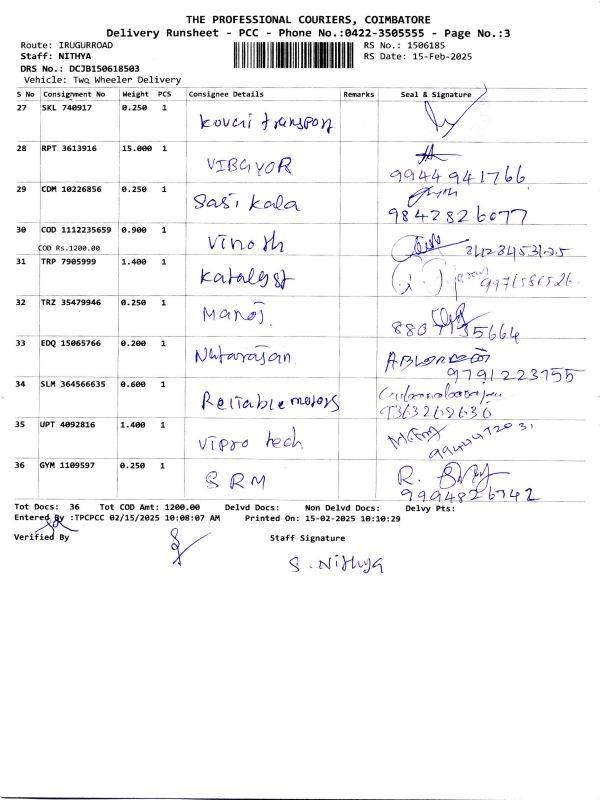 THE PROFESSIONAL COURIERS, COIMBATORE
Delivery Runsheet - PCC - Phone No.:0422-3505555 - Page No.:3
Route: IRUGURROAD RS No.: 1506185
Staff: NITHYA RS Date: 15-Feb-2025
DRS No.: DCJB150618503
Vehicle: Two Wheeler Delivery
S No Consignment No Weight PCS Consignee Details Remarks Seal & Signature
27 SKL 740917 0.250 1 Kovai transport
28 RPT 3613916 15.000 1 VIBGYOR 99444 941766
29 CDM 10226856 0.250 1 Sasi kala 9842826077
30 COD 1112235659 0.900 1 Vinoth
COD Rs.1200.00
31 TRP 7905999 1.400 1 Katalyst
32 TRZ 35479946 0.250 1 Manoj 8807135664
33 EDQ 15065766 0.200 1 Natarajan 9791223755
34 SLM 364566635 0.600 1 Reliable motors
35 UPT 4092816 1.400 1 Vipro tech
36 GYM 1109597 0.250 1 SRM R. 9994826742
Tot Docs: 36 Tot COD Amt: 1200.00 Delvd Docs: Non Delvd Docs: Delvy Pts:
Entered By :TPCPCC 02/15/2025 10:08:07 AM Printed On: 15-02-2025 10:10:29
Verified By Staff Signature
S. Nithya